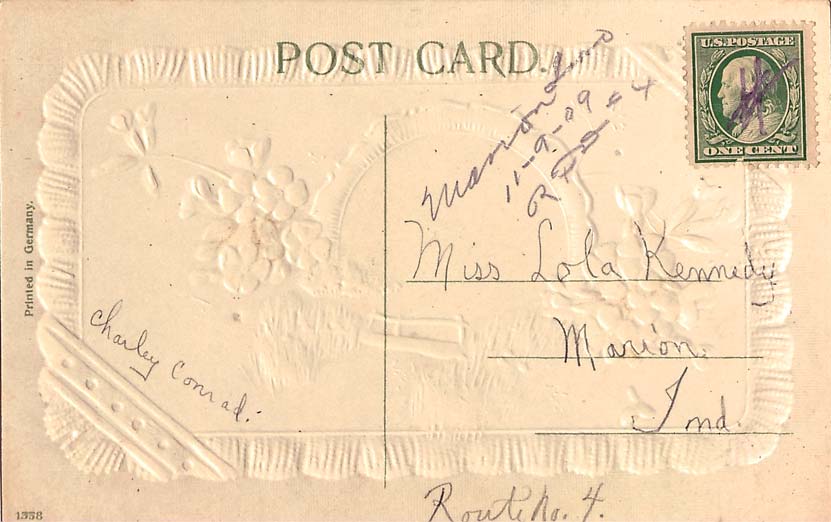 POST CARD.
U.S. POSTAGE
ONE CENT
Marion Ind
11-9-09
RFD #4
Printed in Germany.
Miss Lola Kennedy
Marion
Ind.
Charley Conrad.
Route No. 4.
1338